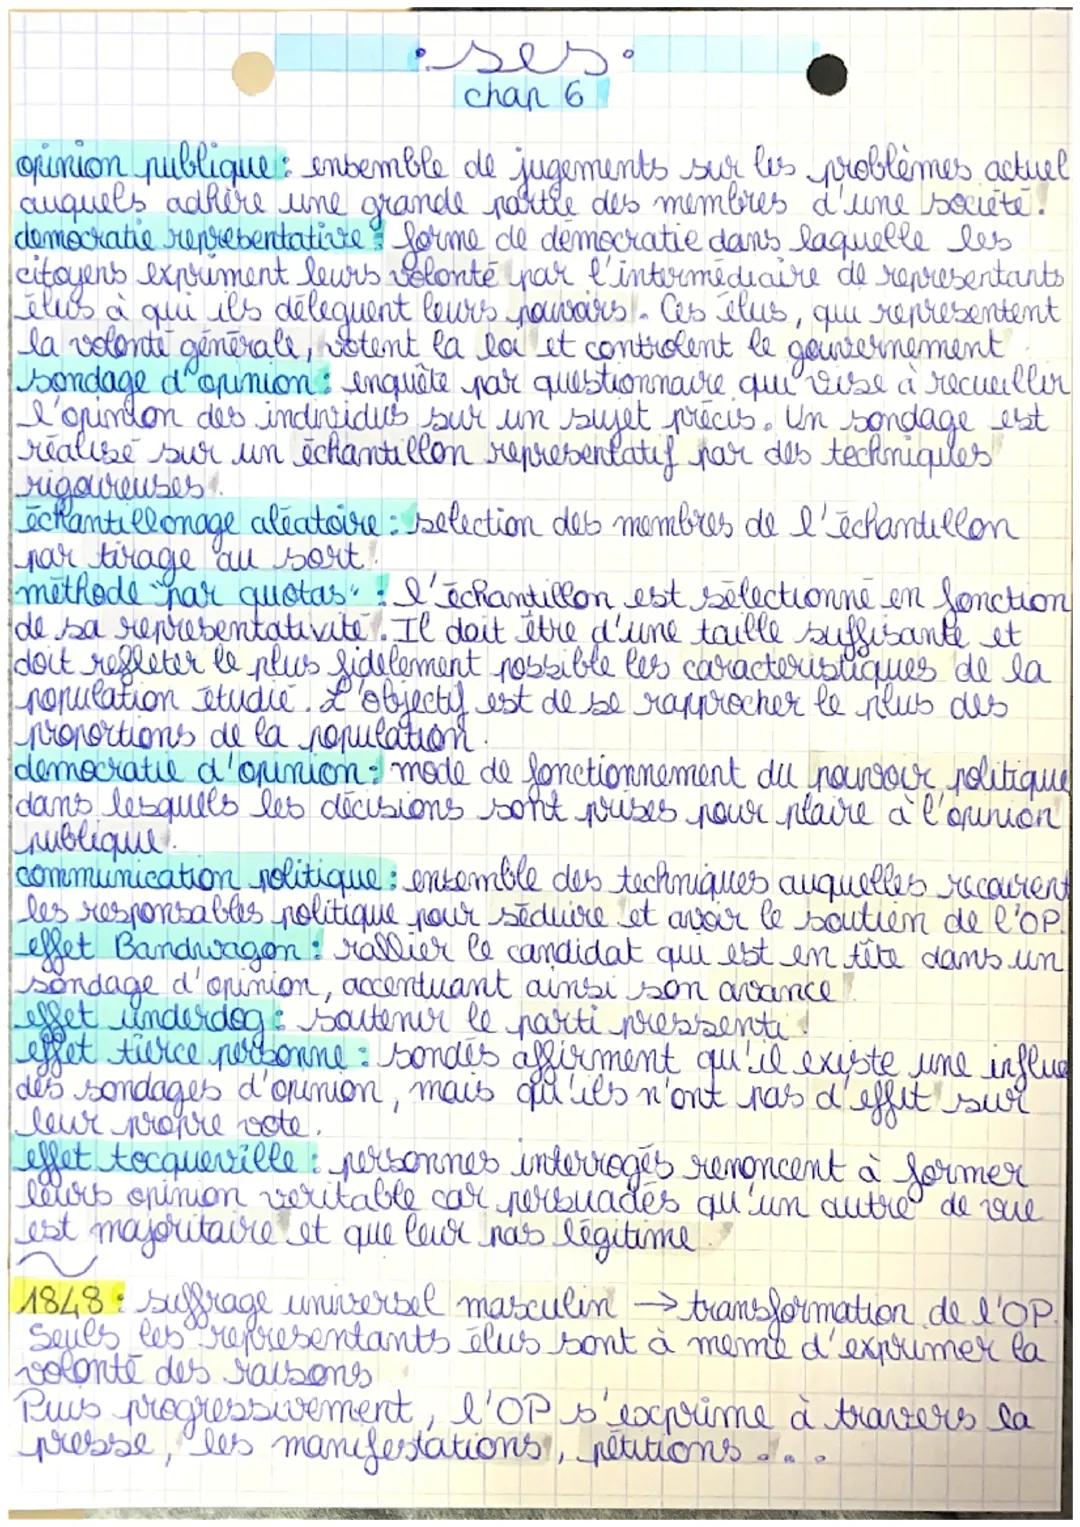 • ses •
chap 6
opinion publique : ensemble de jugements sur les problèmes actuel
auquels adhère une grande partie des membres d'une société.
democratie representative : forme de démocratie dans laquelle les
citoyens expriment leurs volonté par l'intermédiaire de representants
élus à qui ils délèguent leurs pouvoirs. Ces élus, qui representent
la volonté générale, votent la loi et controlent le gouvernement.
sondage d'opinion : enquête par questionnaire qui vise à recueillir
l'opinion des individus sur un sujet précis. Un sondage est
réalisé sur un échantillon representatif par des techniques
rigoureuses.
échantillonage aléatoire : selection des membres de l'échantillon
par tirage au sort.
méthode "par quotas" : l'échantillon est sélectionné en fonction
de sa representativité. Il doit être d'une taille suffisante et
doit refleter le plus fidèlement possible les caracteristiques de la
population étudié. L'objectif est de se rapprocher le plus des
proportions de la population.
democratie d'opinion : mode de fonctionnement du pouvoir politique
dans lesquels les décisions sont prises pour plaire à l'opinion
publique.
communication politique : ensemble des techniques auquelles recourent
les responsables politique pour séduire et avoir le soutien de l'OP.
effet Bandwagon : rallier le candidat qui est en tête dans un
sondage d'opinion, accentuant ainsi son avance.
effet underdog : soutenir le parti pressenti.
effet tierce personne : sondés affirment qu'il existe une influe
des sondages d'opinion, mais qu'ils n'ont pas d'effet sur
leur propre vote.
effet tocqueville : personnes interrogés renoncent à former
leurs opinion veritable car persuadés qu'un autre de vue
est majoritaire et que leur pas légitime.
1848 : suffrage universel masculin → transformation de l'OP.
Seuls les representants élus sont à meme d'exprimer la
volonté des raisons
Puis progressivement, l'OP s'exprime à travers la
presse, les manifestations, pétitions ...